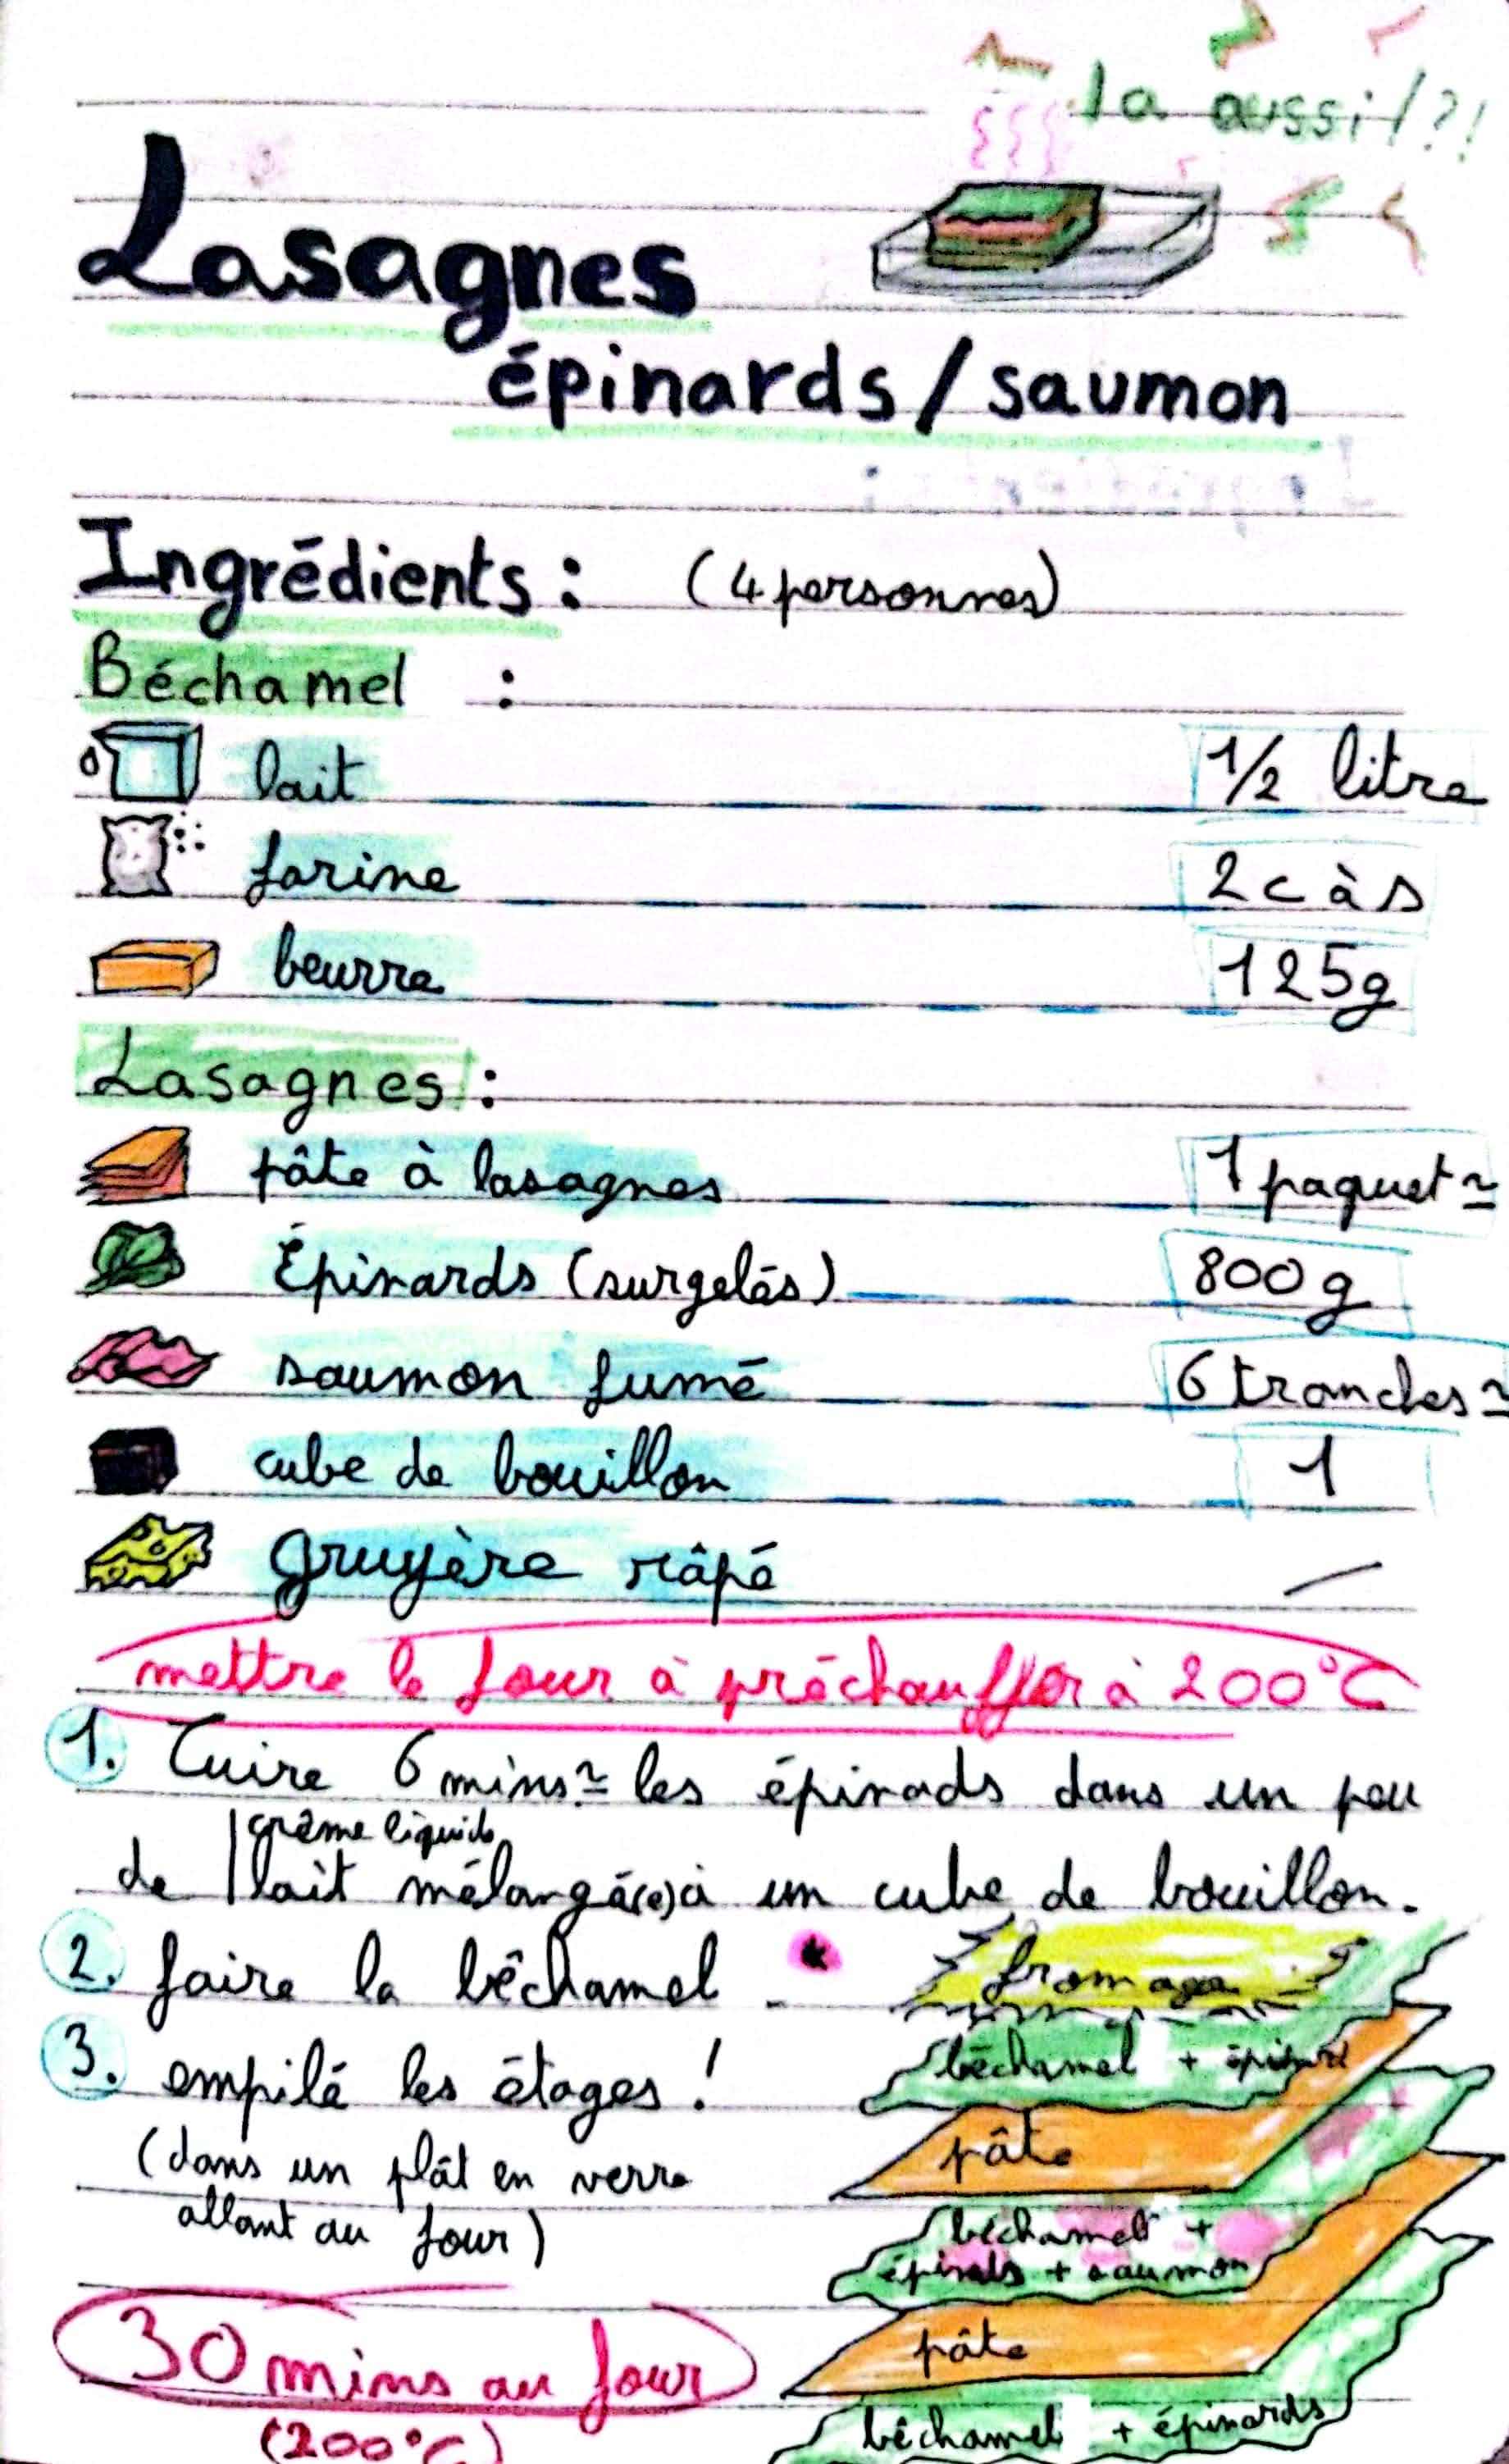 la aussi !?!
Lasagnes
épinards / saumon
Ingrédients : (4 personnes)
Béchamel :
lait 1/2 litre
farine 2 c à s
beurre 125g
Lasagnes :
pâte à lasagnes 1 paquet ≃
Épinards (surgelés) 800 g
saumon fumé 6 tranches ≃
cube de bouillon 1
gruyère râpé /
mettre le four à préchauffer à 200°C
1. Cuire 6 mins ≃ les épinads dans un peu
crème liquide
de | lait mélangé(e) à un cube de bouillon.
2. faire la bêchamel .
3. empilé les étages !
(dans un plât en verre
allant au four)
30 mins au four
(200°C)
fromage
béchamel + épinard
pâte
béchamel +
épinals + saumon
pâte
bêchamel + épinards